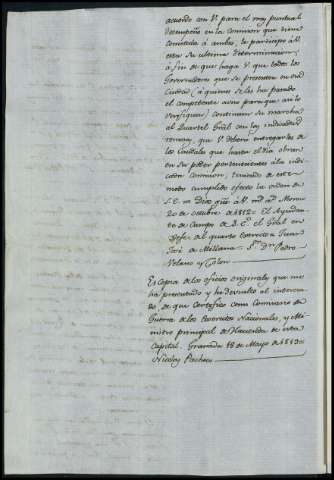 acuerdo con V. para el mas puntual
desempeño en la comision que tiene
cometida á ambos, lo participo á V.
esta su ultima determinacion;
á fin de que haga V. que todos los
Governadores que se presenten en esa
Ciudad (á quienes se les ha pasado
el competente aviso para que asi lo
verifiquen) continuen su marcha
al Quartel Gral con los indicados
V. deberá entregarles de
los Caudales que hasta el dia obran
en su poder pertenecientes á la indi-
cada comision; teniendo de este
modo cumplido efecto la orden de
S. E. = Dios gūe á V. ms. as.
20 de octubre de 1812 = El Ayudan-
te de Campo de S. E. el Gral en
Gefe del quarto Exercito = Juan
José de Millana = Sr. Dn. Pedro
Velano y Colon
Es copia de los oficios originales que me
ha presentado y he devuelto al interesa-
do, de que certifico como Comisario de
Guerra de los Exercitos Nacionales, y Mi-
nistro principal de Hacienda de esta
Capital. Granada 18 de Mayo de 1813 =
Nicolas Pacheco